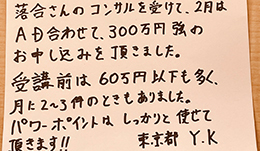 落合さんのコンサルを受けて、2月は
AD合わせて、300万円強の
お申し込みを頂きました。
受講前は60万円以下も多く、
月に2~3件のときもありました。
パワーポイントはしっかりと使せて
頂きます!!　東京都 Y.K